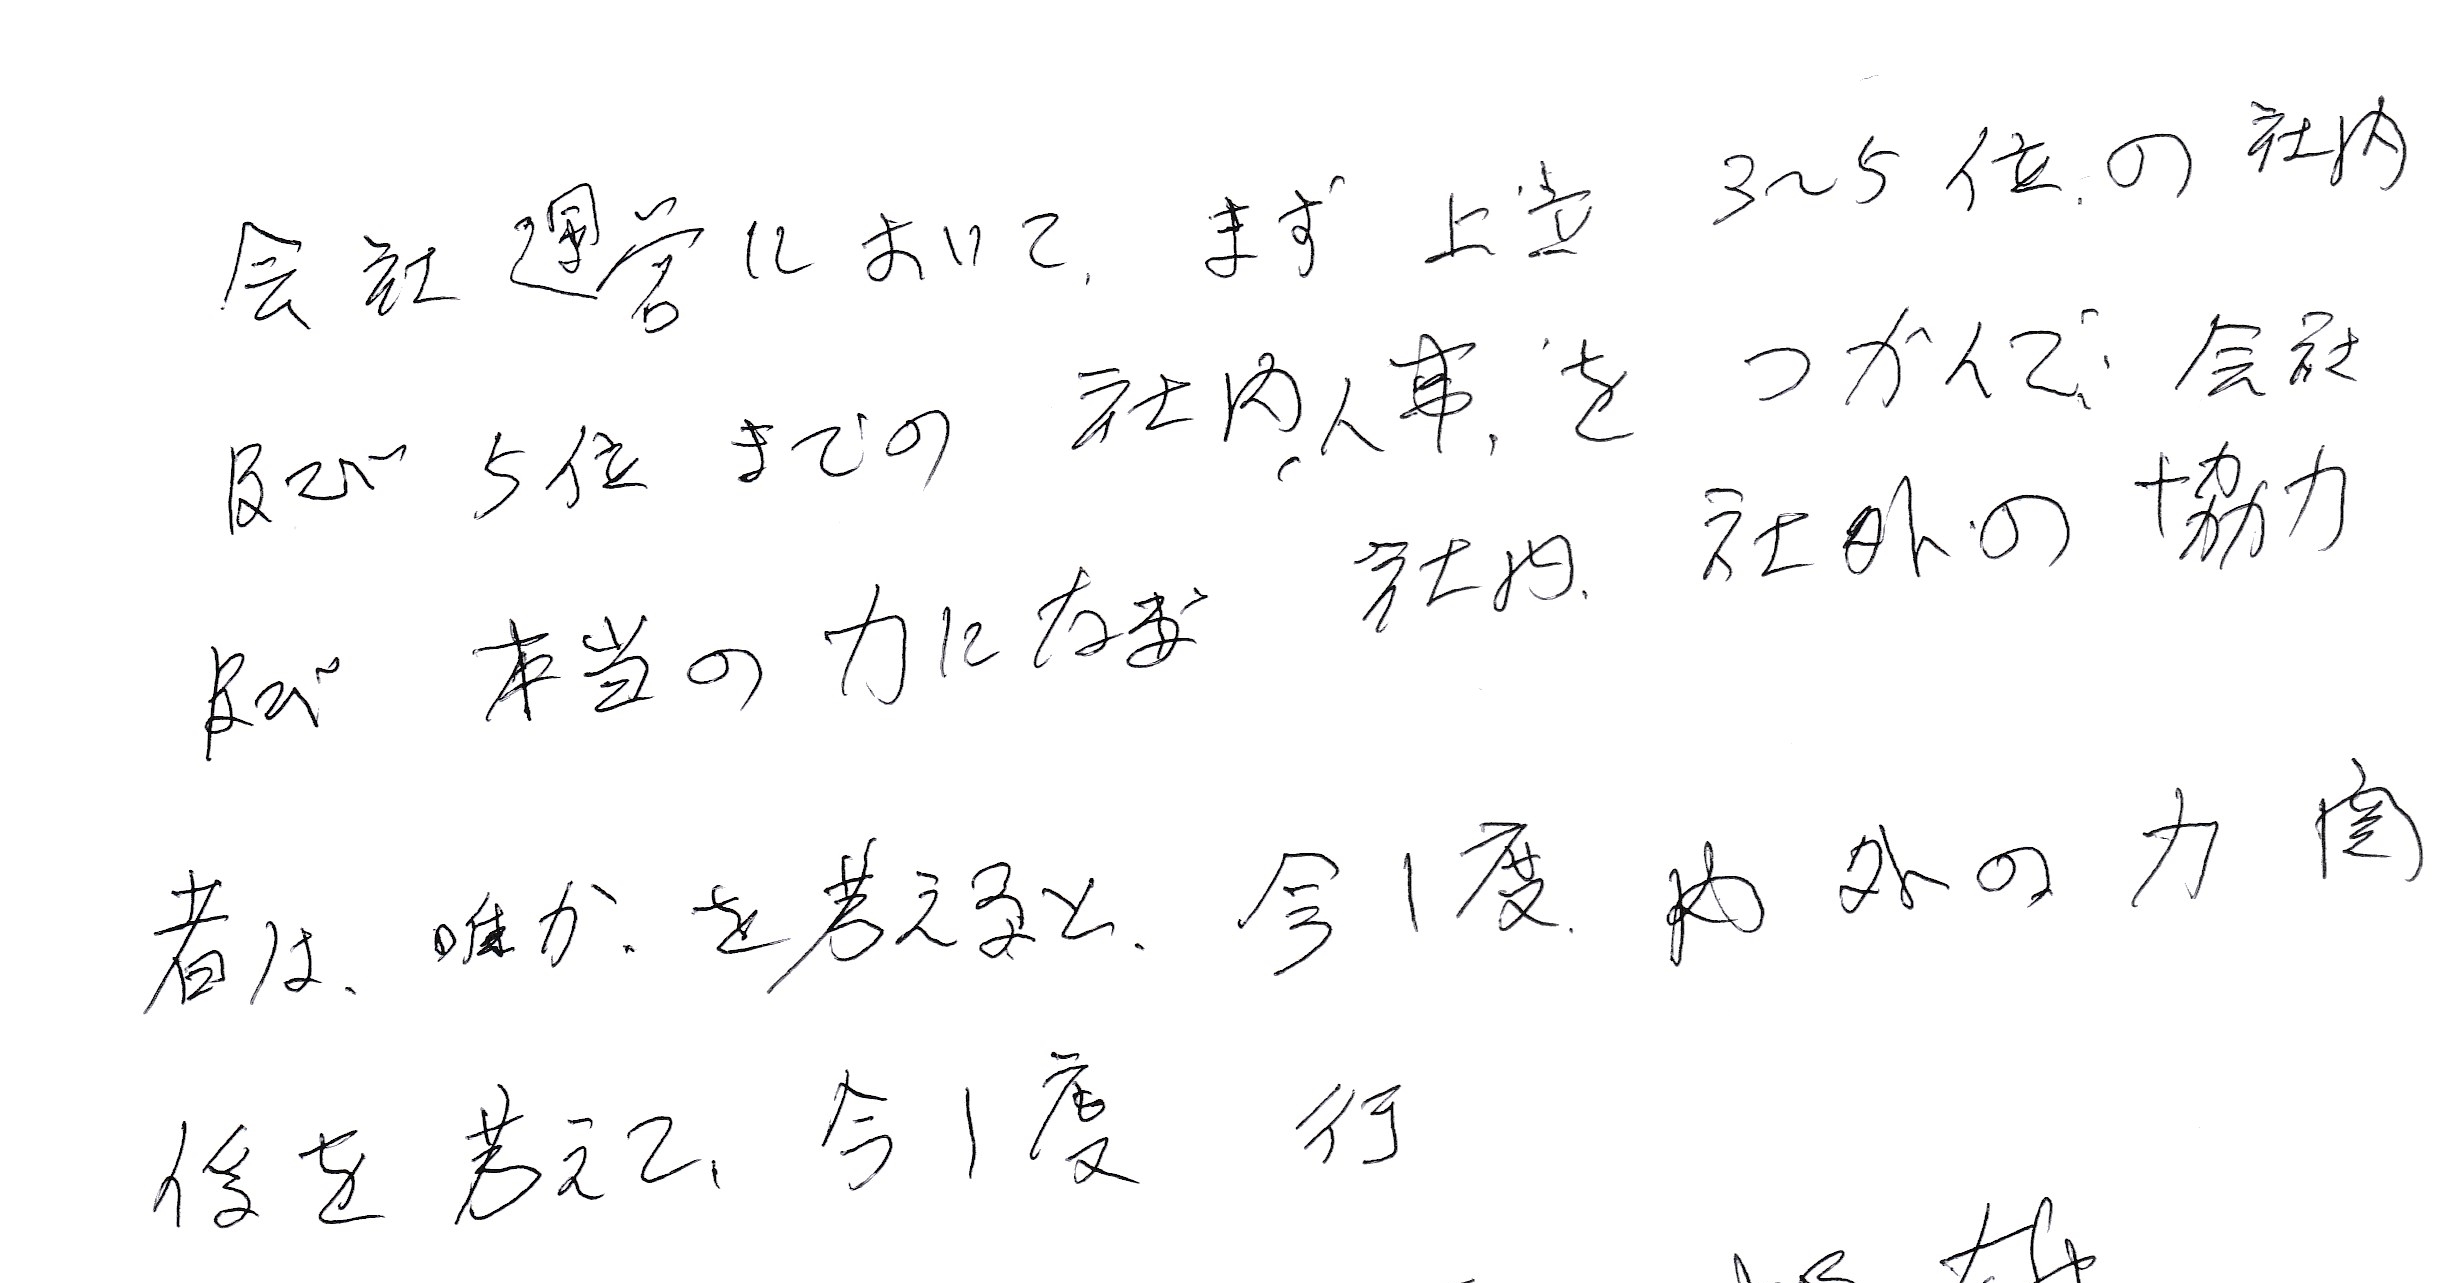 会社運営において、まず上位 3〜5位、の社内
及び 5位までの 社内、人事、を つかんで、会社
及び 本当の 力になる 社内、社外の協力
者は、唯か、を考えると、今1度、内外の力関
係を考えて、今1度 行